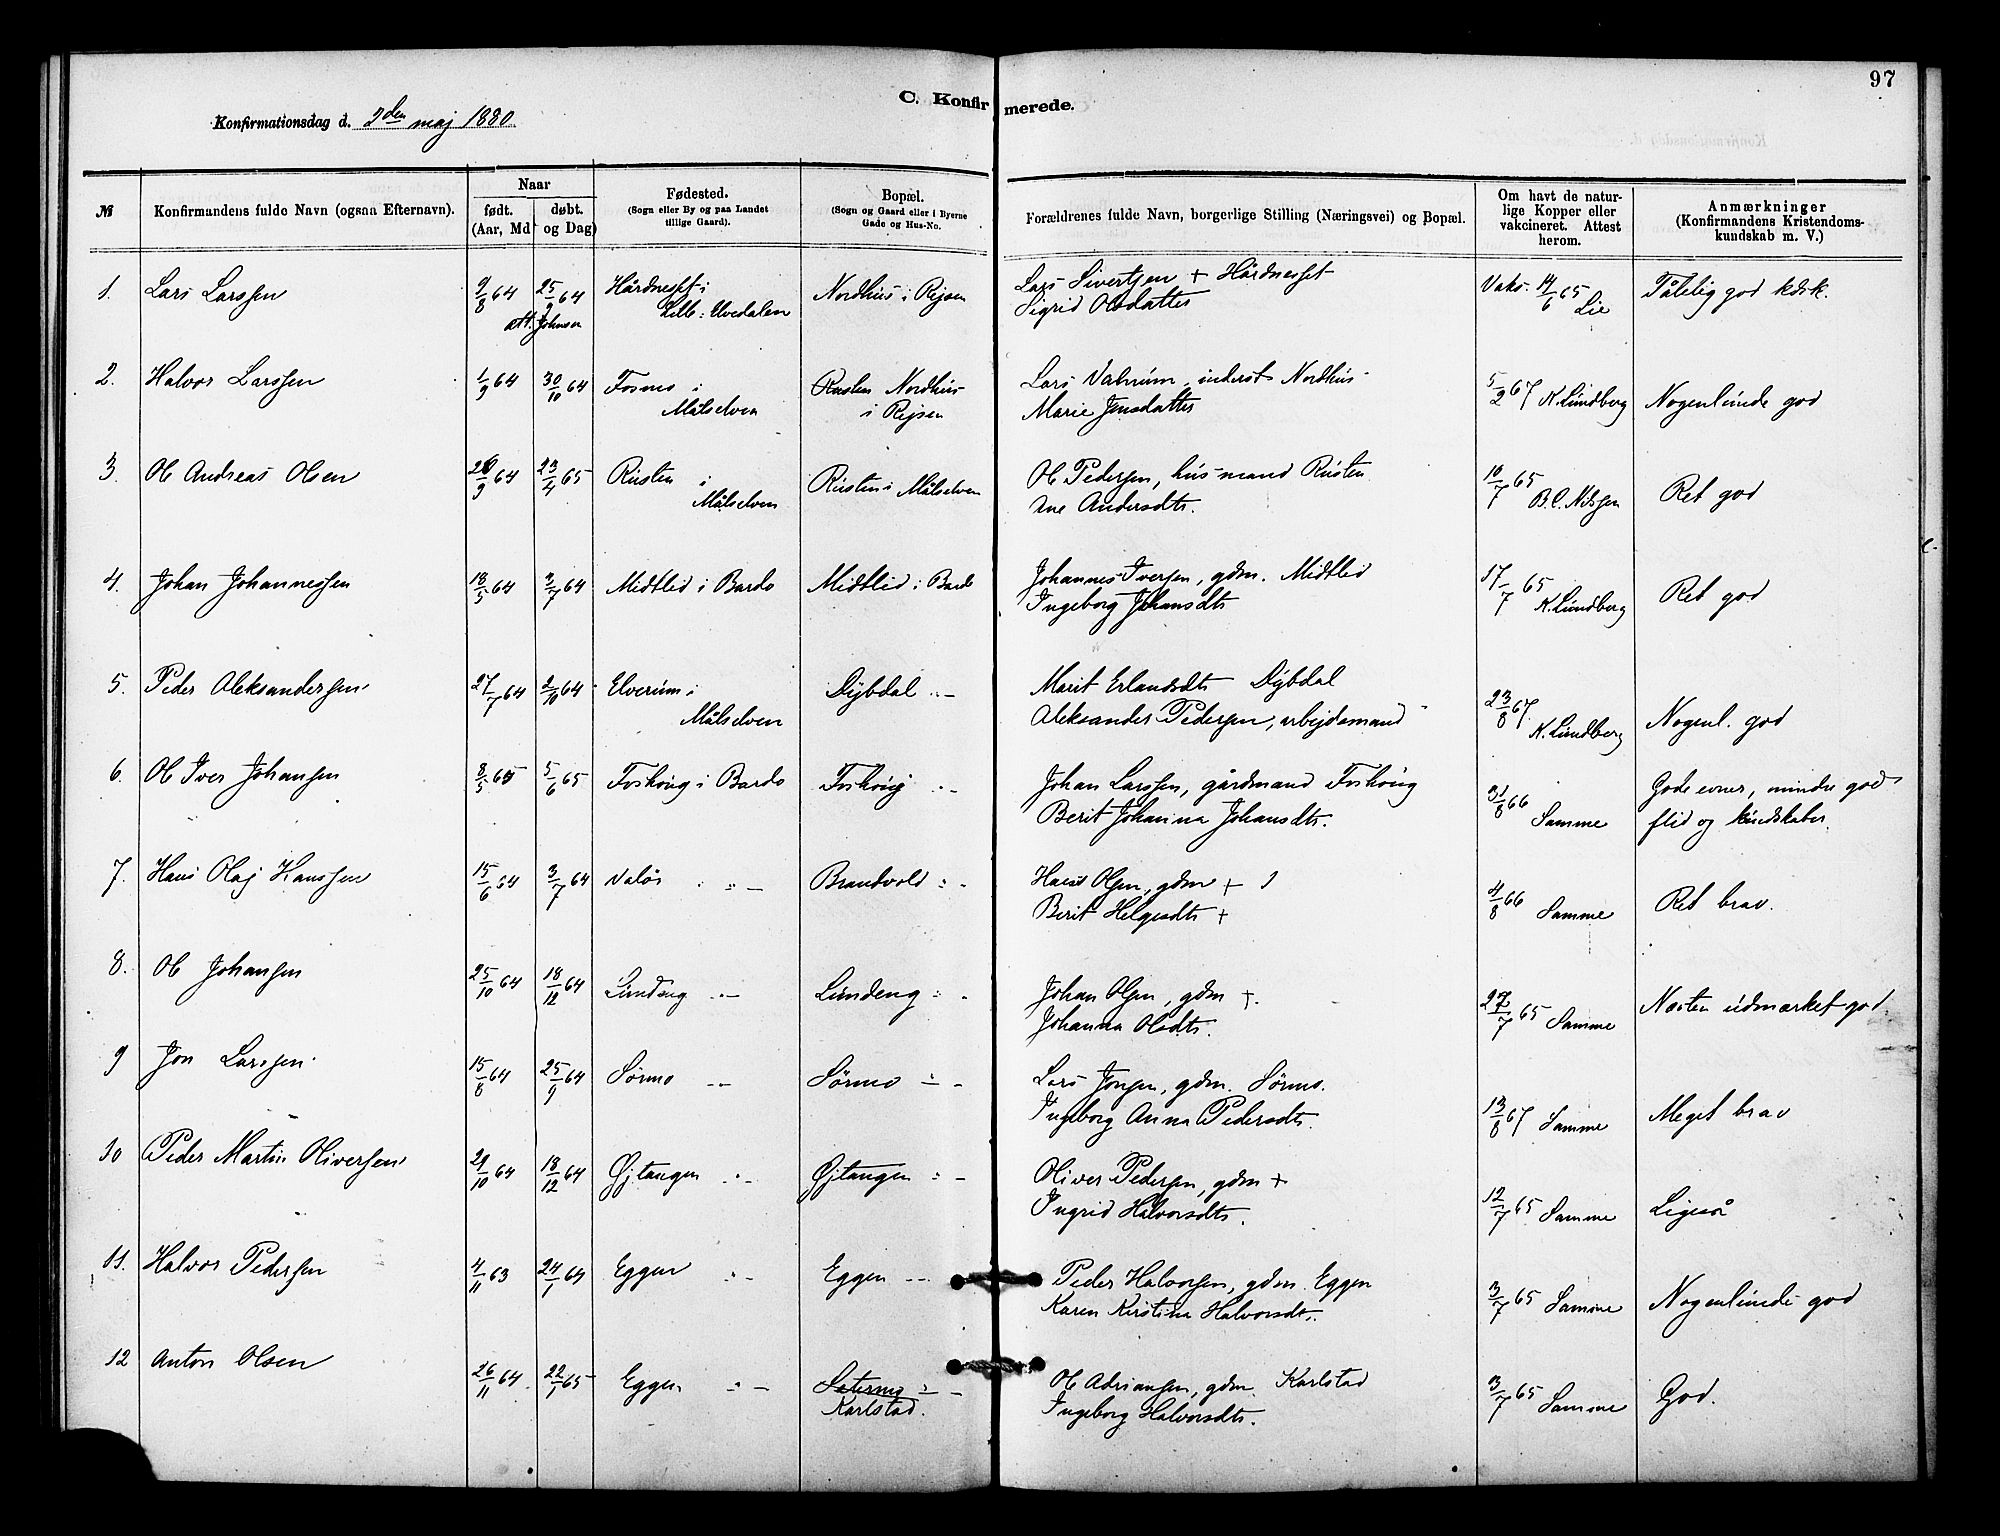 97
C. Konfirmerede.
Konfirmationsdag d. 2den maj 1880.
№ | Konfirmandens fulde Navn (ogsaa Efternavn). | Naar født. (Aar, Md | døbt. og Dag) | Fødested. (Sogn eller By og paa Landet tillige Gaard). | Bopæl. (Sogn og Gaard eller i Byerne Gade og Hus-No. | Forældrenes fulde Navn, borgerlige Stilling (Næringsvei) og Bopæl. | Om havt de naturlige Kopper eller vakcineret. Attest herom. | Anmærkninger (Konfirmandens Kristendomskundskab m. V.)
1. Lars Larssen 9/8 64 25/9 64 Hårdnesset i Nordhus i Rejsen Lars Sivertsen + Hårdnesset Vaks. 14/6 65 Tålelig god kdsk.
att. Johnsen Lille: Ulvedalen Sigrid Olsdatter Lie
2. Halvor Larssen 1/9 64 30/10 64 Fosnes i Rusten Nordhus Lars Valnum, inderst Nordhus 5/2 67 Nogenlunde god
Målselven i Rejsen Marie Jensdatter K. Lundberg
3. Ol Andreas Olsen 26/9 64 23/4 65 Rusten i Rusten i Målselven Ol Pedersen, husmand Rusten 10/7 65 Ret god
Målselven Ane Andersdtr. B.C. Nilssen
4. Johan Johannessen 18/5 64 3/7 64 Midtlid i Bardo Midtlid i Bardo Johannes Iversen, gdm. Midtlid 17/7 65 Ret god
Ingeborg Johansdtr K. Lundberg
5. Peder Aleksandersen 27/7 64 2/10 64 Elverum i Dybdal " - Marit Erlandsdtr Dybdal 23/8 67 Nogenl. god
Målselven Aleksander Pedersen, arbejdsmand K. Lundberg
6. Ol Iver Johansen 8/5 65 5/6 65 Foshoug i Bardo Foshoug " - Johan Larssen, gårdmand Foshoug 31/8 66 Gode evner, mindre god
Berit Johanna Johansdtr. Samme flid og kundskaber.
7. Hans Olaj Hanssen 15/6 64 3/7 64 Nalös " - Brandvold " - Hans Olsen, gdm + 4/8 66 Ret brav.
Berit Helgesdtr + Samme
8. Ol Johansen 25/10 64 18/12 64 Lundeng " - Lundeng " - Johan Olsen, gdm +. 27/7 65 Næsten udmærket god.
Johanna Olsdtr. Samme
9 Jon Larssen 15/8 64 25/9 64 Sørmo " - Sørmo " - Lars Jonsen, gdm. Sørmo. 13/8 67 Meget brav
Ingeborg Anna Pedersdtr. Samme
10 Peder Martin Oliversen 29/10 64 18/12 64 Øjtangen " - Øjtangen " - Oliver Pedersen, gdm + 12/7 65 Ligeså
Ingrid Halvorsdtr. Samme
11. Halvor Pedersen 4/11 63 24/1 64 Eggen " - Eggen " - Peder Halvorsen, gdm. Eggen 3/7 65 Nogenlunde god
Karen Kirstina Halvorsdtr. Samme
12 Anton Olsen 26/11 64. 22/1 65 Eggen " - Sætermo " - Ol Adriansen, gdm. Karlstad 3/7 65 God.
Karlstad. Ingeborg Halvorsdtr. Samme